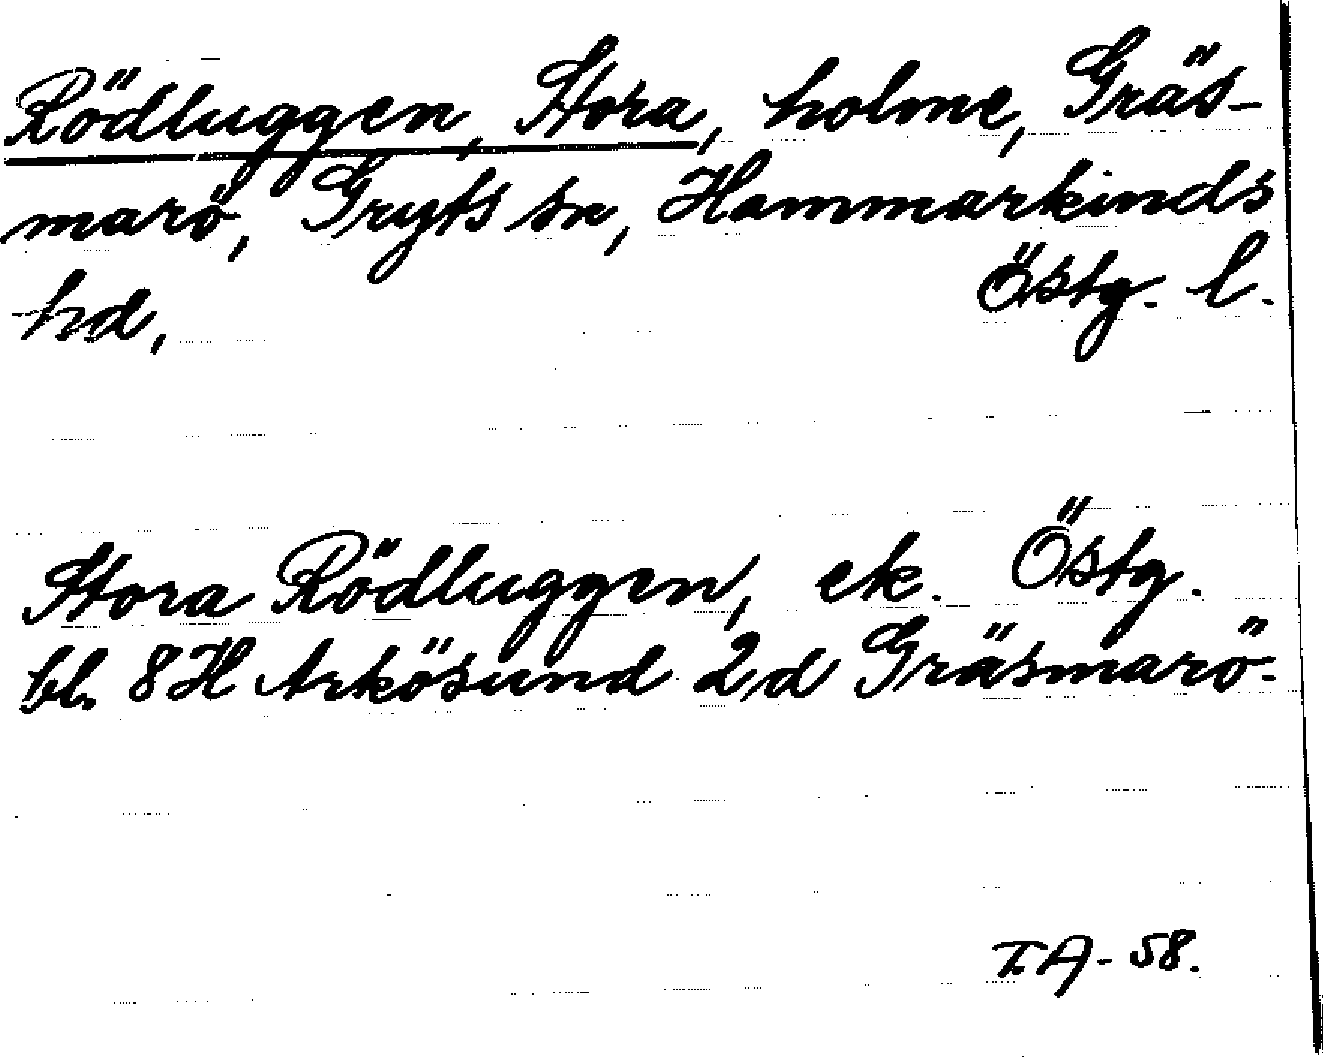 Rödluggen, Stora, holme, Gräs-
marö, Gryts sn, Hammarkinds
hd, Östg. l.
Stora Rödluggen, ek. Östg.
bl. 8H Arkösund 2,d Gräsmarö.
T.A-58.